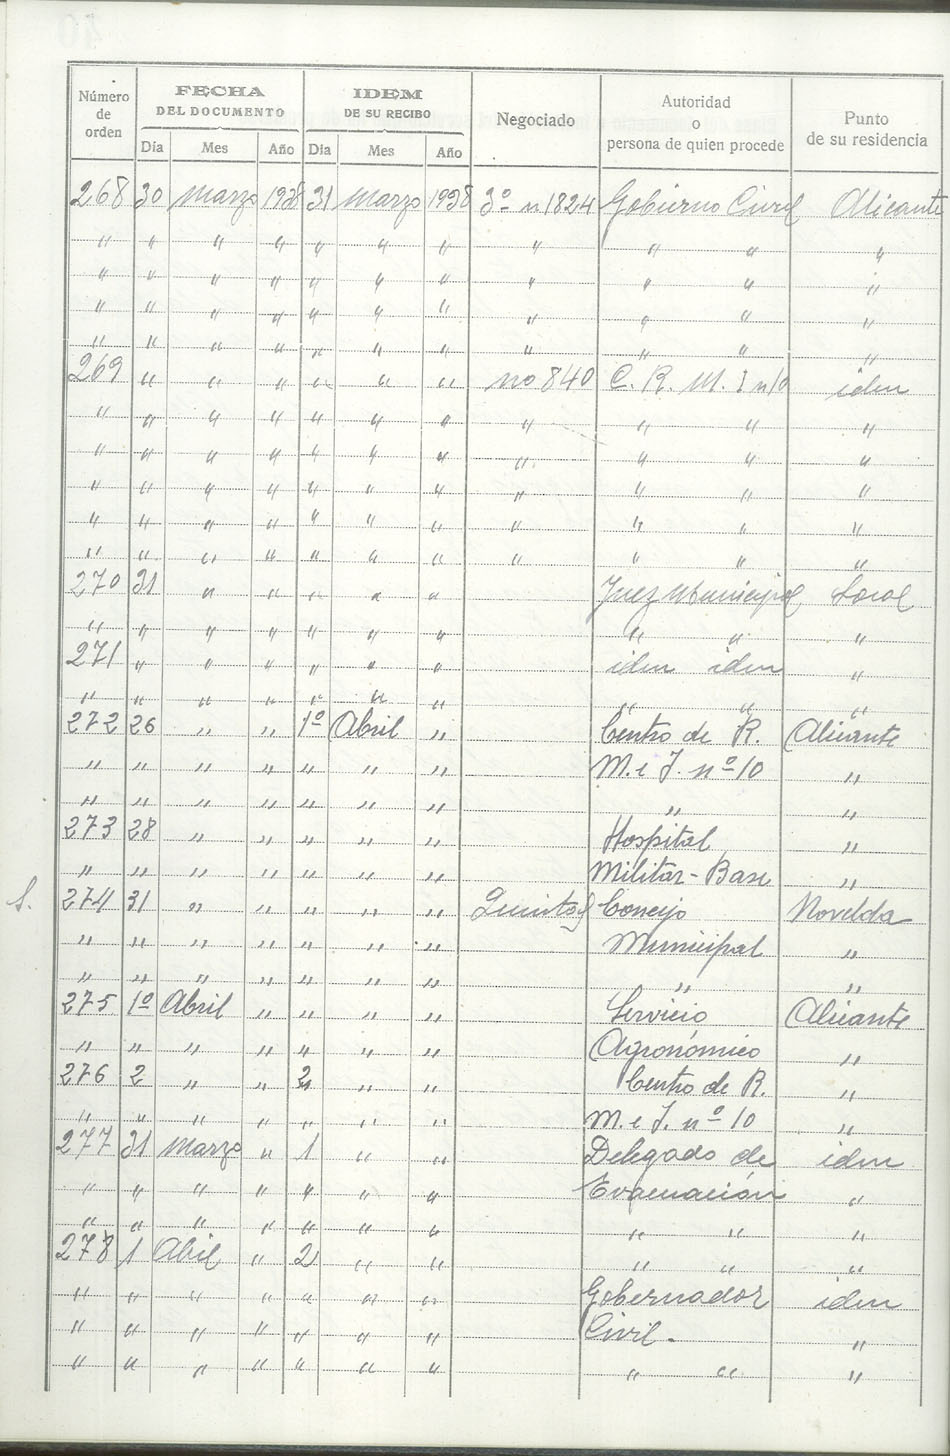 Número de orden | FECHA DEL DOCUMENTO | IDEM DE SU RECIBO | Negociado | Autoridad o persona de quien procede | Punto de su residencia
Día Mes Año Día Mes Año
268 30 Marzo 1938 31 Marzo 1938 3º n 1824 Gobierno Civil Alicante
" " " " " " " " " " "
" " " " " " " " " " "
" " " " " " " " " " "
" " " " " " " " " " "
269 " " " " " " no 840 C. R. M. I n 10 idem
" " " " " " " " " " "
" " " " " " " " " " "
" " " " " " " " " " "
" " " " " " " " " " "
" " " " " " " " " " "
270 31 " " " " " Juez Municipal Local
" " " " " " " " " "
271 " " " " " " idem idem "
" " " " " " " " " "
272 26 " " 1º Abril " Centro de R. Alicante
" " " " " " " M. e I. nº 10 "
" " " " " " " " "
273 28 " " " " " Hospital "
" " " " " " " Militar-Base "
S. 274 31 " " " " " Quintas Concejo Novelda
" " " " " " " Municipal "
" " " " " " " " "
275 1º Abril " " " " Servicio Alicante
" " " " " " " Agronómico "
276 2 " " 2 " " Centro de R. "
" " " " " " " M. e I. nº 10 "
277 31 Marzo " 1 " " Delegado de idem
" " " " " " " Evacuación "
" " " " " " " " " "
278 1 Abil " 2 " " " " "
" " " " " " " Gobernador idem
" " " " " " " Civil. "
" " " " " " " " " "